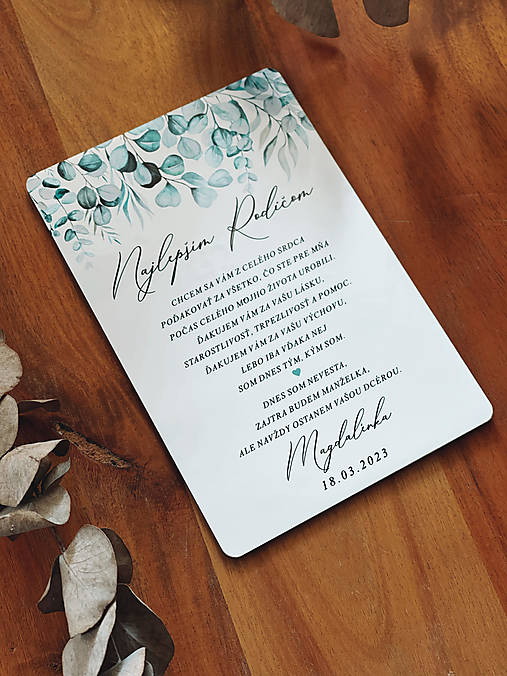 Najlepším Rodičom
CHCEM SA VÁM Z CELÉHO SRDCA
POĎAKOVAŤ ZA VŠETKO, ČO STE PRE MŇA
POČAS CELÉHO MOJHO ŽIVOTA UROBILI.
ĎAKUJEM VÁM ZA VAŠU LÁSKU,
STAROSTLIVOSŤ, TRPEZLIVOSŤ A POMOC.
ĎAKUJEM VÁM ZA VAŠU VÝCHOVU,
LEBO IBA VĎAKA NEJ
SOM DNES TÝM, KÝM SOM.
DNES SOM NEVESTA,
ZAJTRA BUDEM MANŽELKA,
ALE NAVŽDY OSTANEM VAŠOU DCÉROU.
Magdalénka
18.03.2023